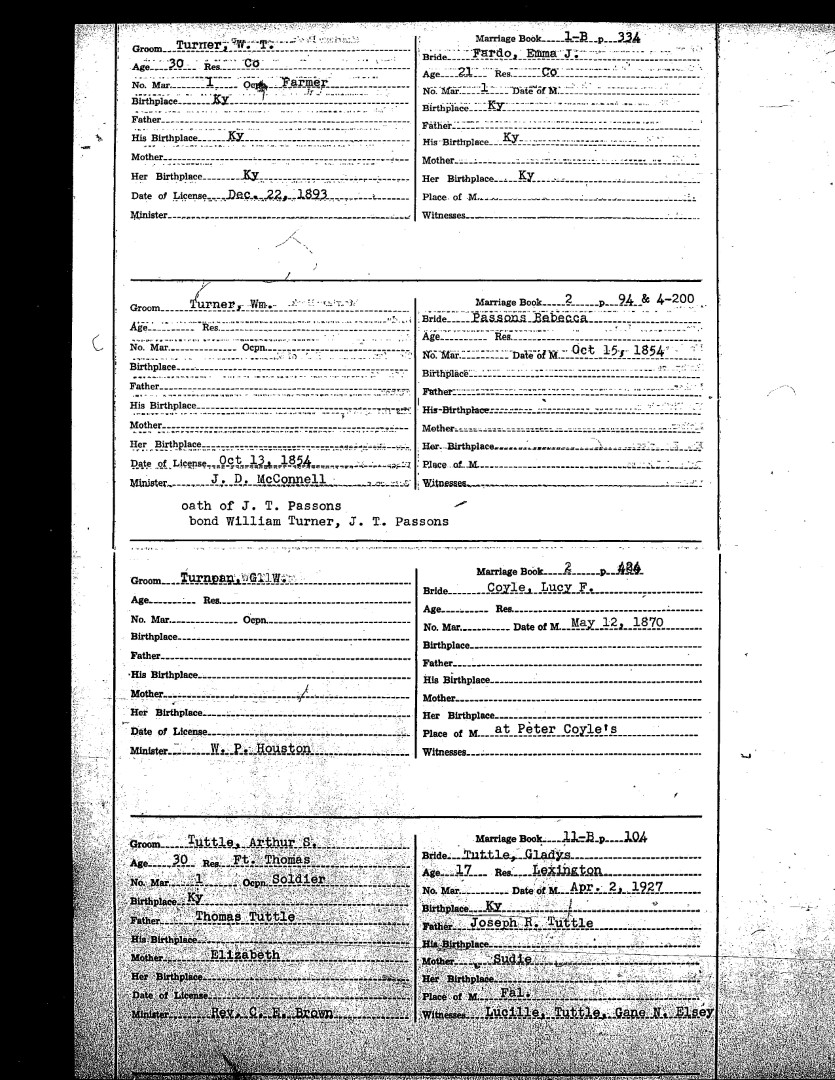 Groom Turner, W. T.
Age 30 Res Co
No. Mar. 1 Ocpn Farmer
Birthplace Ky
Father
His Birthplace Ky
Mother
Her Birthplace Ky
Date of License Dec. 22, 1893
Minister
Marriage Book 1-B p. 334
Bride Fardo, Emma J.
Age 21 Res Co
No. Mar. 1 Date of M.
Birthplace Ky
Father
His Birthplace Ky
Mother
Her Birthplace Ky
Place of M.
Witnesses
Groom Turner, Wm.
Age Res
No. Mar. Ocpn.
Birthplace
Father
His Birthplace
Mother
Her Birthplace
Date of License Oct 13, 1854
Minister J. D. McConnell
Marriage Book 2 p. 94 & 4-200
Bride Passons Rebecca
Age Res
No. Mar. Date of M. Oct 15, 1854
Birthplace
Father
His Birthplace
Mother
Her Birthplace
Place of M.
Witnesses
oath of J. T. Passons
bond William Turner, J. T. Passons
Groom
Age Res
No. Mar. Ocpn.
Birthplace
Father
His Birthplace
Mother
Her Birthplace
Date of License
Minister W. P. Houston
Marriage Book 2 p. 484
Bride Coyle, Lucy F.
Age Res
No. Mar. Date of M. May 12, 1870
Birthplace
Father
His Birthplace
Mother
Her Birthplace
Place of M. at Peter Coyle's
Witnesses
Groom Tuttle, Arthur S.
Age 30 Res Ft. Thomas
No. Mar. 1 Ocpn. Soldier
Birthplace Ky
Father Thomas Tuttle
His Birthplace
Mother Elizabeth
Her Birthplace
Date of License
Minister Rev. C. E. Brown
Marriage Book 11-B p. 104
Bride Tuttle, Gladys
Age 17 Res Lexington
No. Mar. Date of M. Apr. 2, 1927
Birthplace Ky
Father Joseph R. Tuttle
His Birthplace
Mother Sudie
Her Birthplace
Place of M. Fal.
Witnesses Lucille, Tuttle, Gane N. Elsey